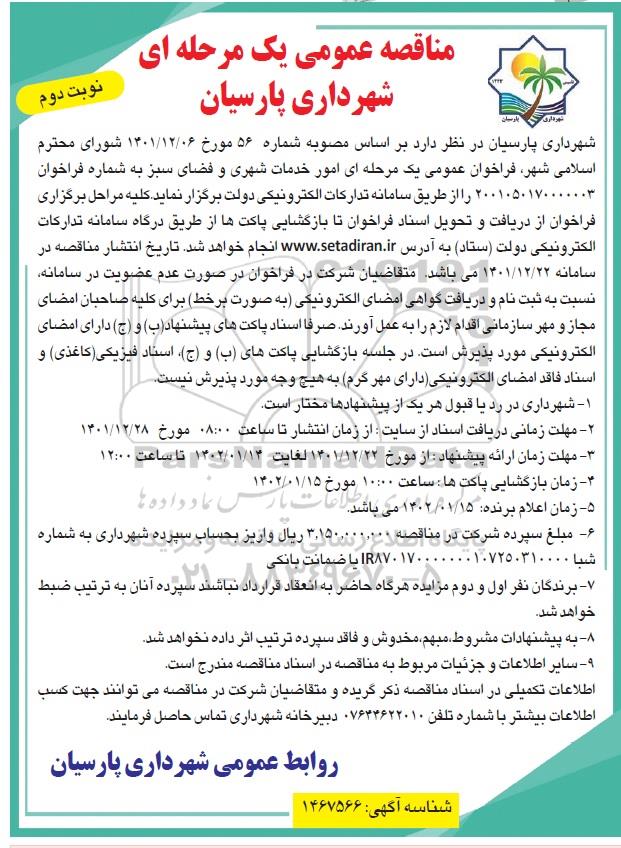 مناقصه عمومی یک مرحله ای
شهرداری پارسیان
نوبت دوم
تاسیس ۱۳۴۳
شهرداری پارسیان
شهرداری پارسیان در نظر دارد بر اساس مصوبه شماره ۵۶ مورخ ۱۴۰۱/۱۲/۰۶ شورای محترم
اسلامی شهر، فراخوان عمومی یک مرحله ای امور خدمات شهری و فضای سبز به شماره فراخوان
۲۰۰۱۰۵۰۱۷۰۰۰۰۰۰۳ را از طریق سامانه تدارکات الکترونیکی دولت برگزار نماید.کلیه مراحل برگزاری
فراخوان از دریافت و تحویل اسناد فراخوان تا بازگشایی پاکت ها از طریق درگاه سامانه تدارکات
الکترونیکی دولت (ستاد) به آدرس www.setadiran.ir انجام خواهد شد. تاریخ انتشار مناقصه در
سامانه ۱۴۰۱/۱۲/۲۲ می باشد. متقاضیان شرکت در فراخوان در صورت عدم عضویت در سامانه،
نسبت به ثبت نام و دریافت گواهی امضای الکترونیکی (به صورت برخط) برای کلیه صاحبان امضای
مجاز و مهر سازمانی اقدام لازم را به عمل آورند. صرفا اسناد پاکت های پیشنهاد(ب) و (ج) دارای امضای
الکترونیکی مورد پذیرش است. در جلسه بازگشایی پاکت های (ب) و (ج)، اسناد فیزیکی(کاغذی) و
اسناد فاقد امضای الکترونیکی(دارای مهر گرم) به هیچ وجه مورد پذیرش نیست.
۱- شهرداری در رد یا قبول هر یک از پیشنهادها مختار است.
۲-مهلت زمانی دریافت اسناد از سایت : از زمان انتشار تا ساعت ۰۸:۰۰ مورخ ۱۴۰۱/۱۲/۲۸
۳-مهلت زمان ارائه پیشنهاد : از مورخ ۱۴۰۱/۱۲/۲۲ لغایت ۱۴۰۲/۰۱/۱۴ تا ساعت ۱۲:۰۰
۴-زمان بازگشایی پاکت ها : ساعت ۱۰:۰۰ مورخ ۱۴۰۲/۰۱/۱۵
۵-زمان اعلام برنده: ۱۴۰۲/۰۱/۱۵ می باشد.
۶- مبلغ سپرده شرکت در مناقصه ۳,۱۵۰,۰۰۰,۰۰۰ ریال واریز بحساب سپرده شهرداری به شماره
شبا IR۸۷۰۱۷۰۰۰۰۰۰۰۱۰۷۲۵۰۳۱۰۰۰۰ یا ضمانت بانکی
۷-برندگان نفر اول و دوم مزایده هرگاه حاضر به انعقاد قرارداد نباشند سپرده آنان به ترتیب ضبط
خواهد شد.
۸-به پیشنهادات مشروط،مبهم،مخدوش و فاقد سپرده ترتیب اثر داده نخواهد شد.
۹-سایر اطلاعات و جزئیات مربوط به مناقصه در اسناد مناقصه مندرج است.
اطلاعات تکمیلی در اسناد مناقصه ذکر گریده و متقاضیان شرکت در مناقصه می توانند جهت کسب
اطلاعات بیشتر با شماره تلفن ۰۷۶۴۴۶۲۲۰۱۰ دبیرخانه شهرداری تماس حاصل فرمایند.
روابط عمومی شهرداری پارسیان
شناسه آگهی: ۱۴۶۷۵۶۶
ParsNamadData
پایگاه اطلاع رسانی مناقصه و مزایده
۰۲۱-۸۸۳۴۹۶۷۰-۵